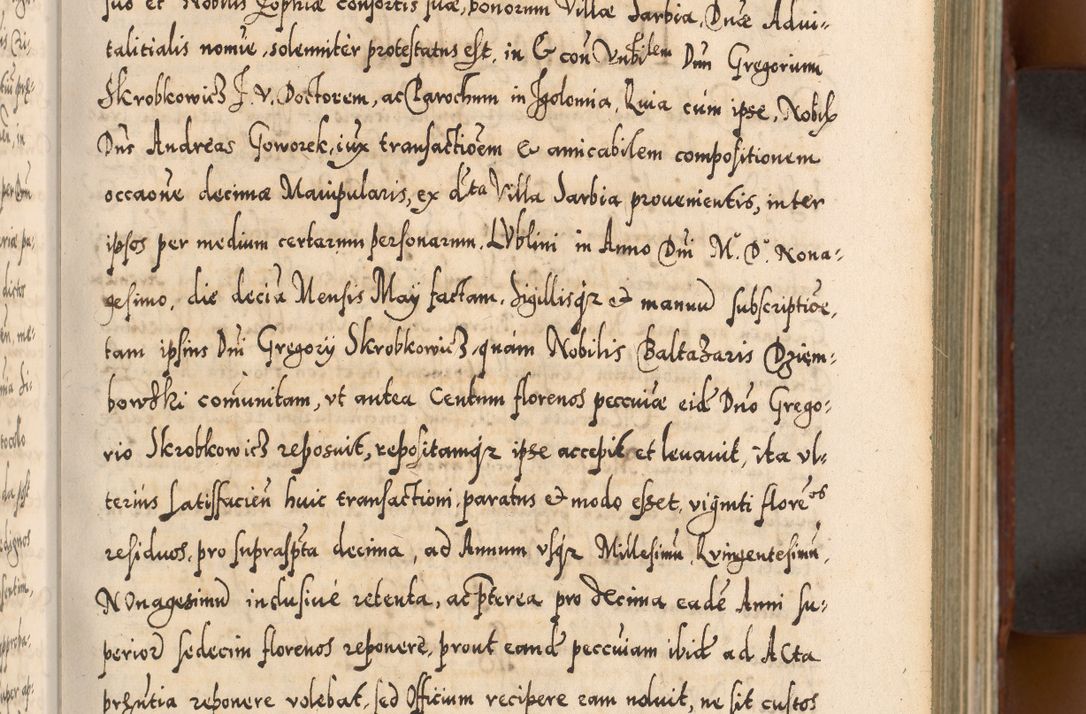 suo et Nobilis Zophiæ consortis suæ, bonorum Villæ Sarbia, Duæ Advi-
talitialis nomīe, solenniter protestatus est, in & con Vnbilem Dnn Gregorium
Skrobkowicz J. V. Doctorem, ac Parochum in Jgolomia, Quia cum ipse, Nobilꝭ
Dns Andreas Goworek, iux transactiōem & amicabilem compositionem
occaōne decimæ Manipularis, ex dcta Villa Sarbia prouenientis, inter
ipsos per medium certarum personarum, LVblini in Anno Dni M. D. Nona-
gesimo, die decīa Mensis Maÿ factam, sigillisqʒ & manuū subscriptiōe,
tam ipsius Dni Gregorÿ Skrobkowicz, quàm Nobilis Baltazaris Dzięm-
bowski comūnitam, vt antea Centum florenos peccuiæ eid Dno Grego-
rio Skrobkowicz reposuit, repositamqʒ ipse accepit et leuauit, ita vl-
terius satisfacieñ huic transactioni, paratus & modo esset, viginti florenos
residuos, pro suprasp̄ta decima, ad Annum vsqʒ Millesimū Qvingentesimū,
NOnagesimū inclusiuè retenta, ac p̄terea pro decima eadē Anni su-
perioꝝ sedecim florenos reponere, prout eand peccūiam ibid ad ACta
prēntia reponere volebat, sed Officium recipere eam noluit, ne sit custos